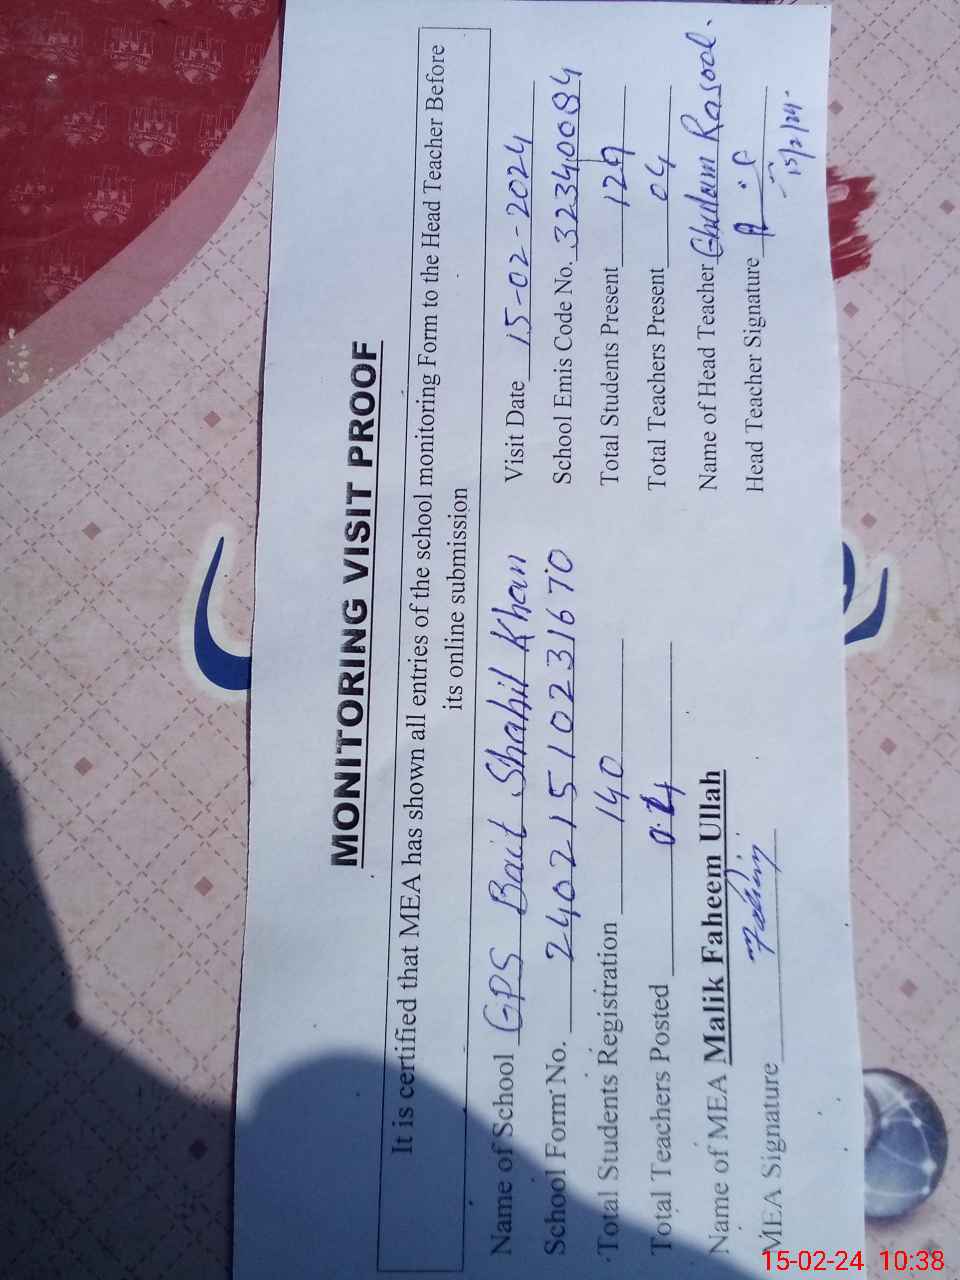 MONITORING VISIT PROOF
It is certified that MEA has shown all entries of the school monitoring Form to the Head Teacher Before
its online submission
Name of School GPS Bait Shahil Khan Visit Date 15-02-2024
School Form No. 24021510231670 School Emis Code No. 32340084
Total Students Registration 140 Total Students Present 129
Total Teachers Posted 04 Total Teachers Present 04
Name of MEA Malik Faheem Ullah Name of Head Teacher Ghulam Rasool.
MEA Signature Fahim Head Teacher Signature
15/2/24.
15-02-24 10:38